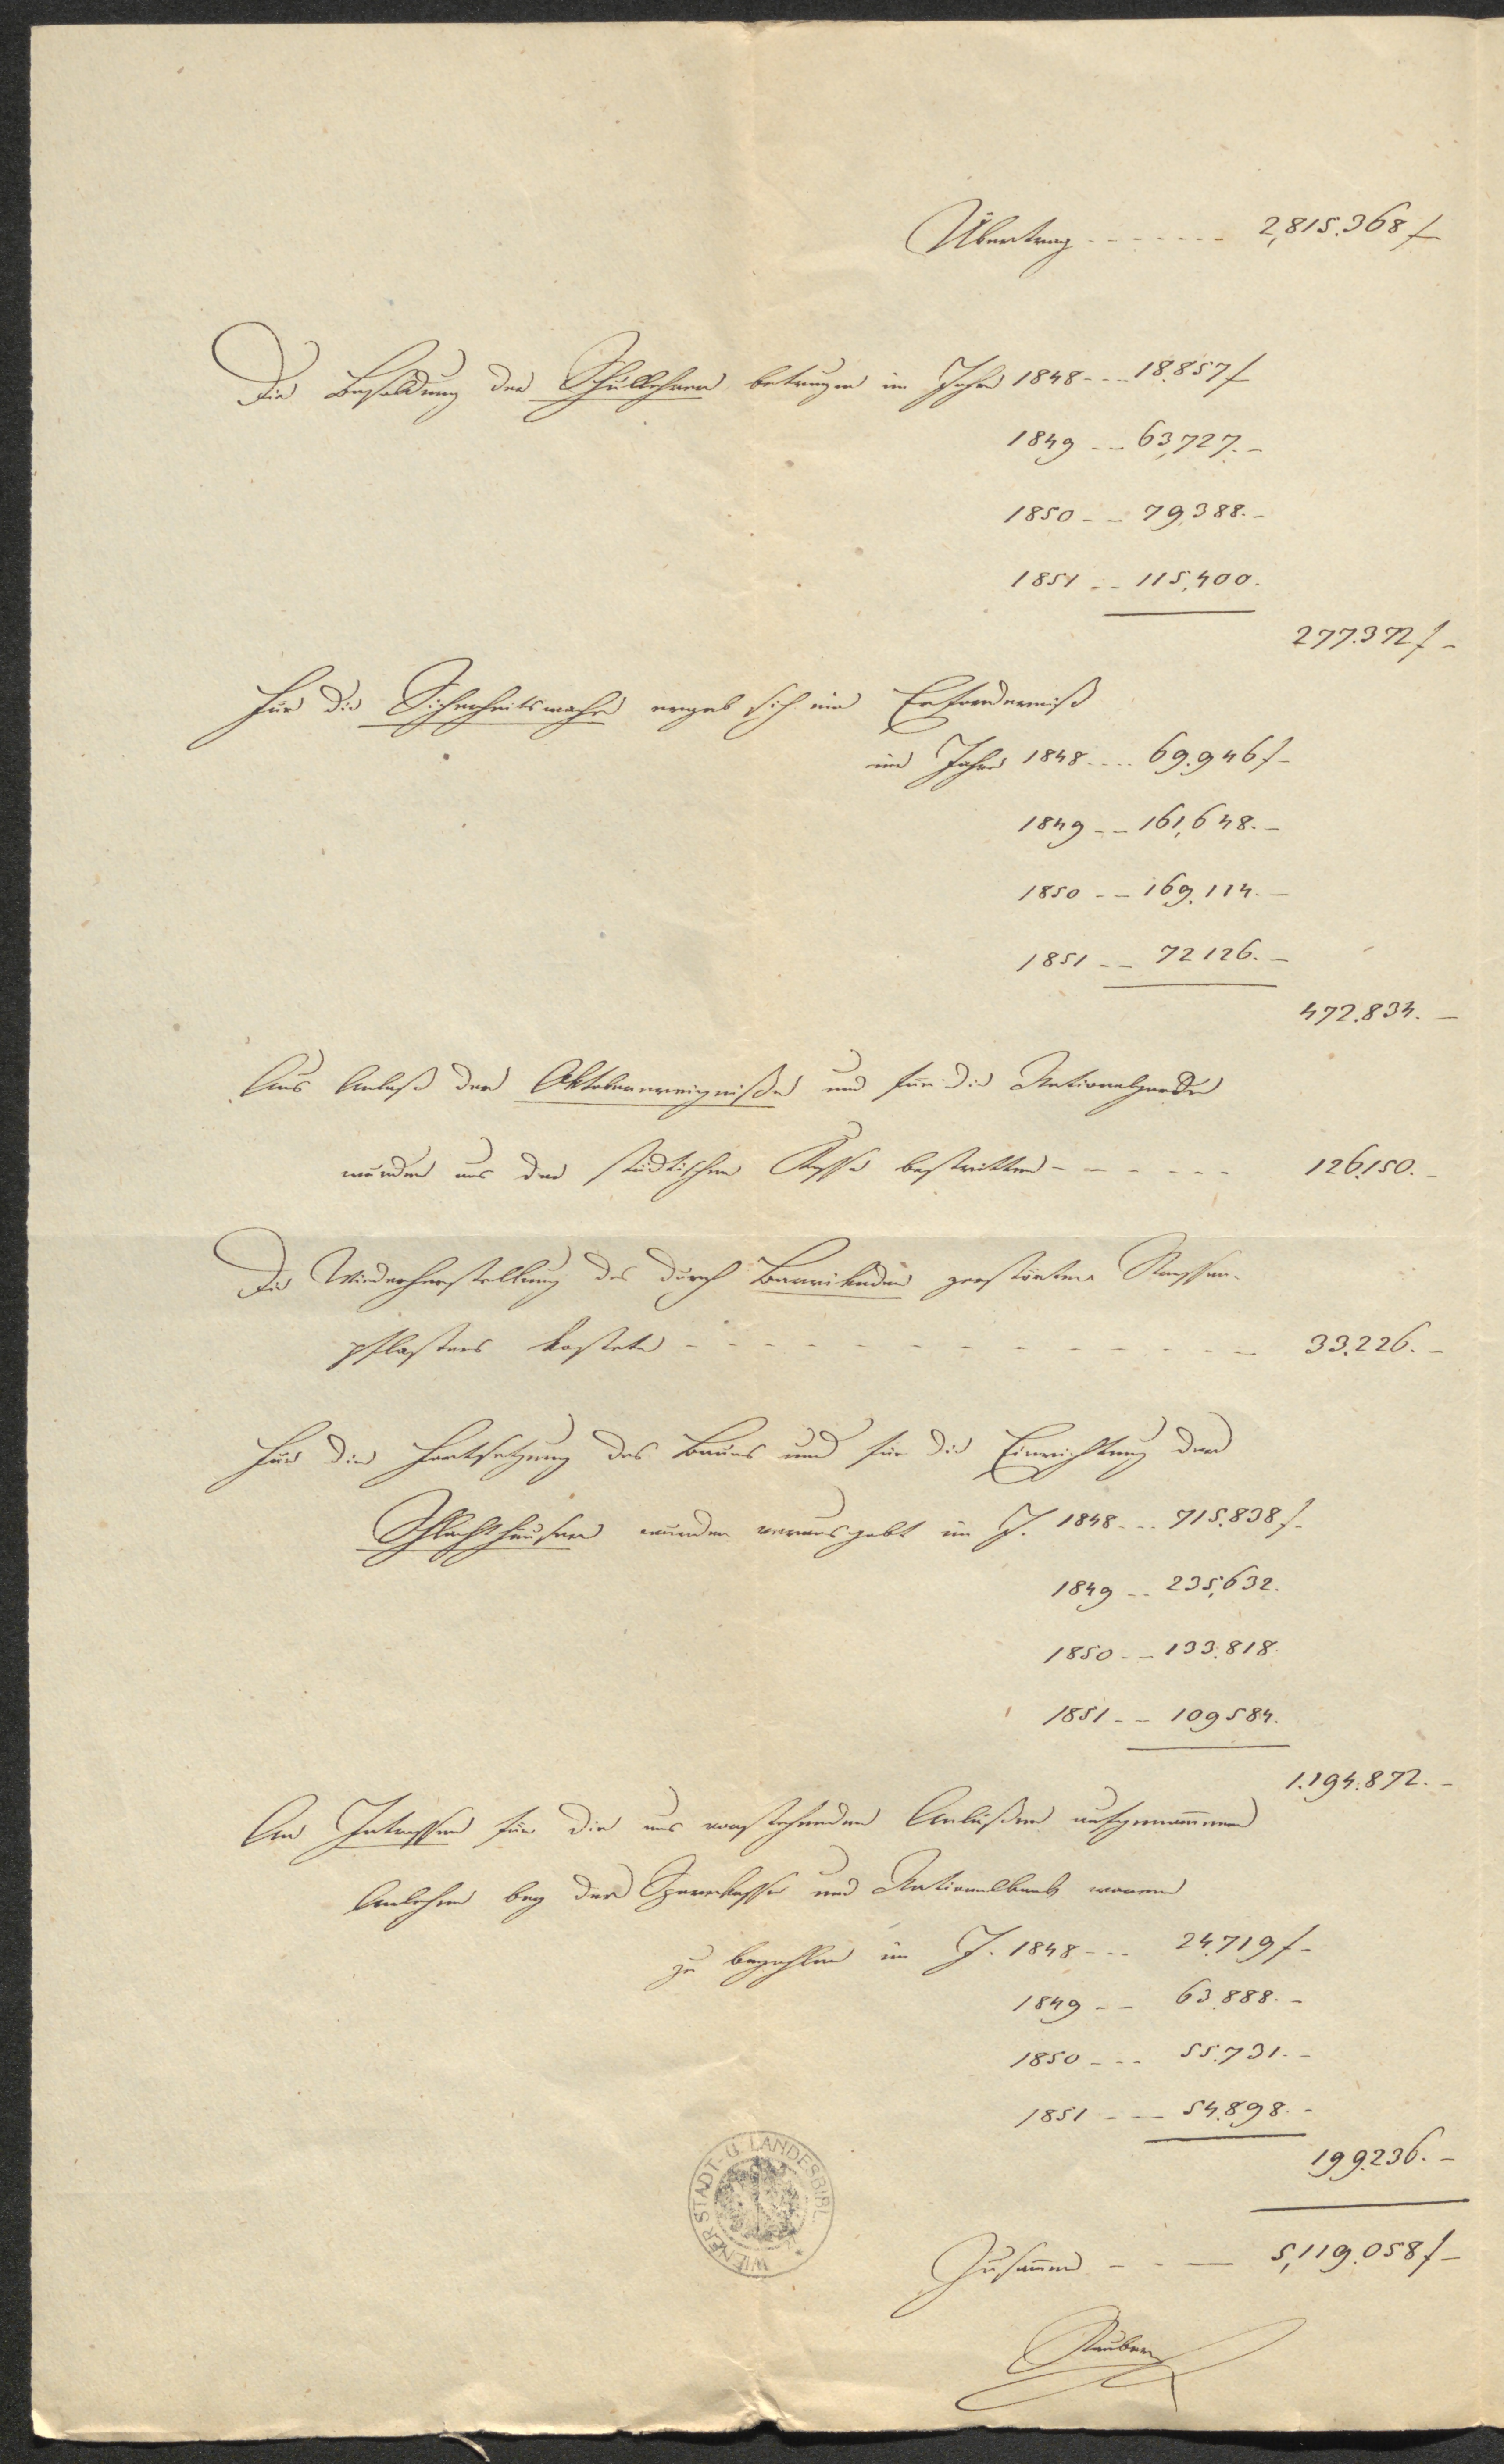 Übertrag - - - - - - - 2,815.368 f
Die Besoldung der Schullehrer betrugen im Jahre 1848 - - - 18.857 f
1849 - - 63,727. -
1850 - - 79,388. -
1851 - - 115,400.
277.372 f -
Für die Sicherheitswache ergab sich ein Erforderniß
im Jahre 1848 - - - - 69.946 f -
1849 - - 161,648. -
1850 - - 169.114. -
1851 - - 72126. -
472.834. -
Aus Anlaß der Oktoberereigniße und für die Nationalgarde
wurden aus der städtischen Kasse bestritten - - - - - - 126,150. -
Die Wiederherstellung des durch Barrikaden zerstörten Strassen-
pflasters kostete - - - - - - - - - - - - - - 33.226. -
Für die Fortsetzung des Baues und für die Einrichtung der
Schlachthäuser wurden verausgabt im J. 1848 - - - 715.838 f -
1849 - - 235,632.
1850 - - 133.818.
1851 - - 109584.
1.194.872. -
An Intressen für die aus vorstehenden Anläßen aufgenommenen
Anlehen bey der Sparkasse und Nationalbank waren
zu bezahlen im J. 1848 - - - 24.719 f -
1849 - - 63.888. -
1850 - - - 55.731. -
1851 - - - 54.898. -
199236. -
Zusammen - - - 5,119.058 f -
WIENER STADT- U. LANDESBIBL.